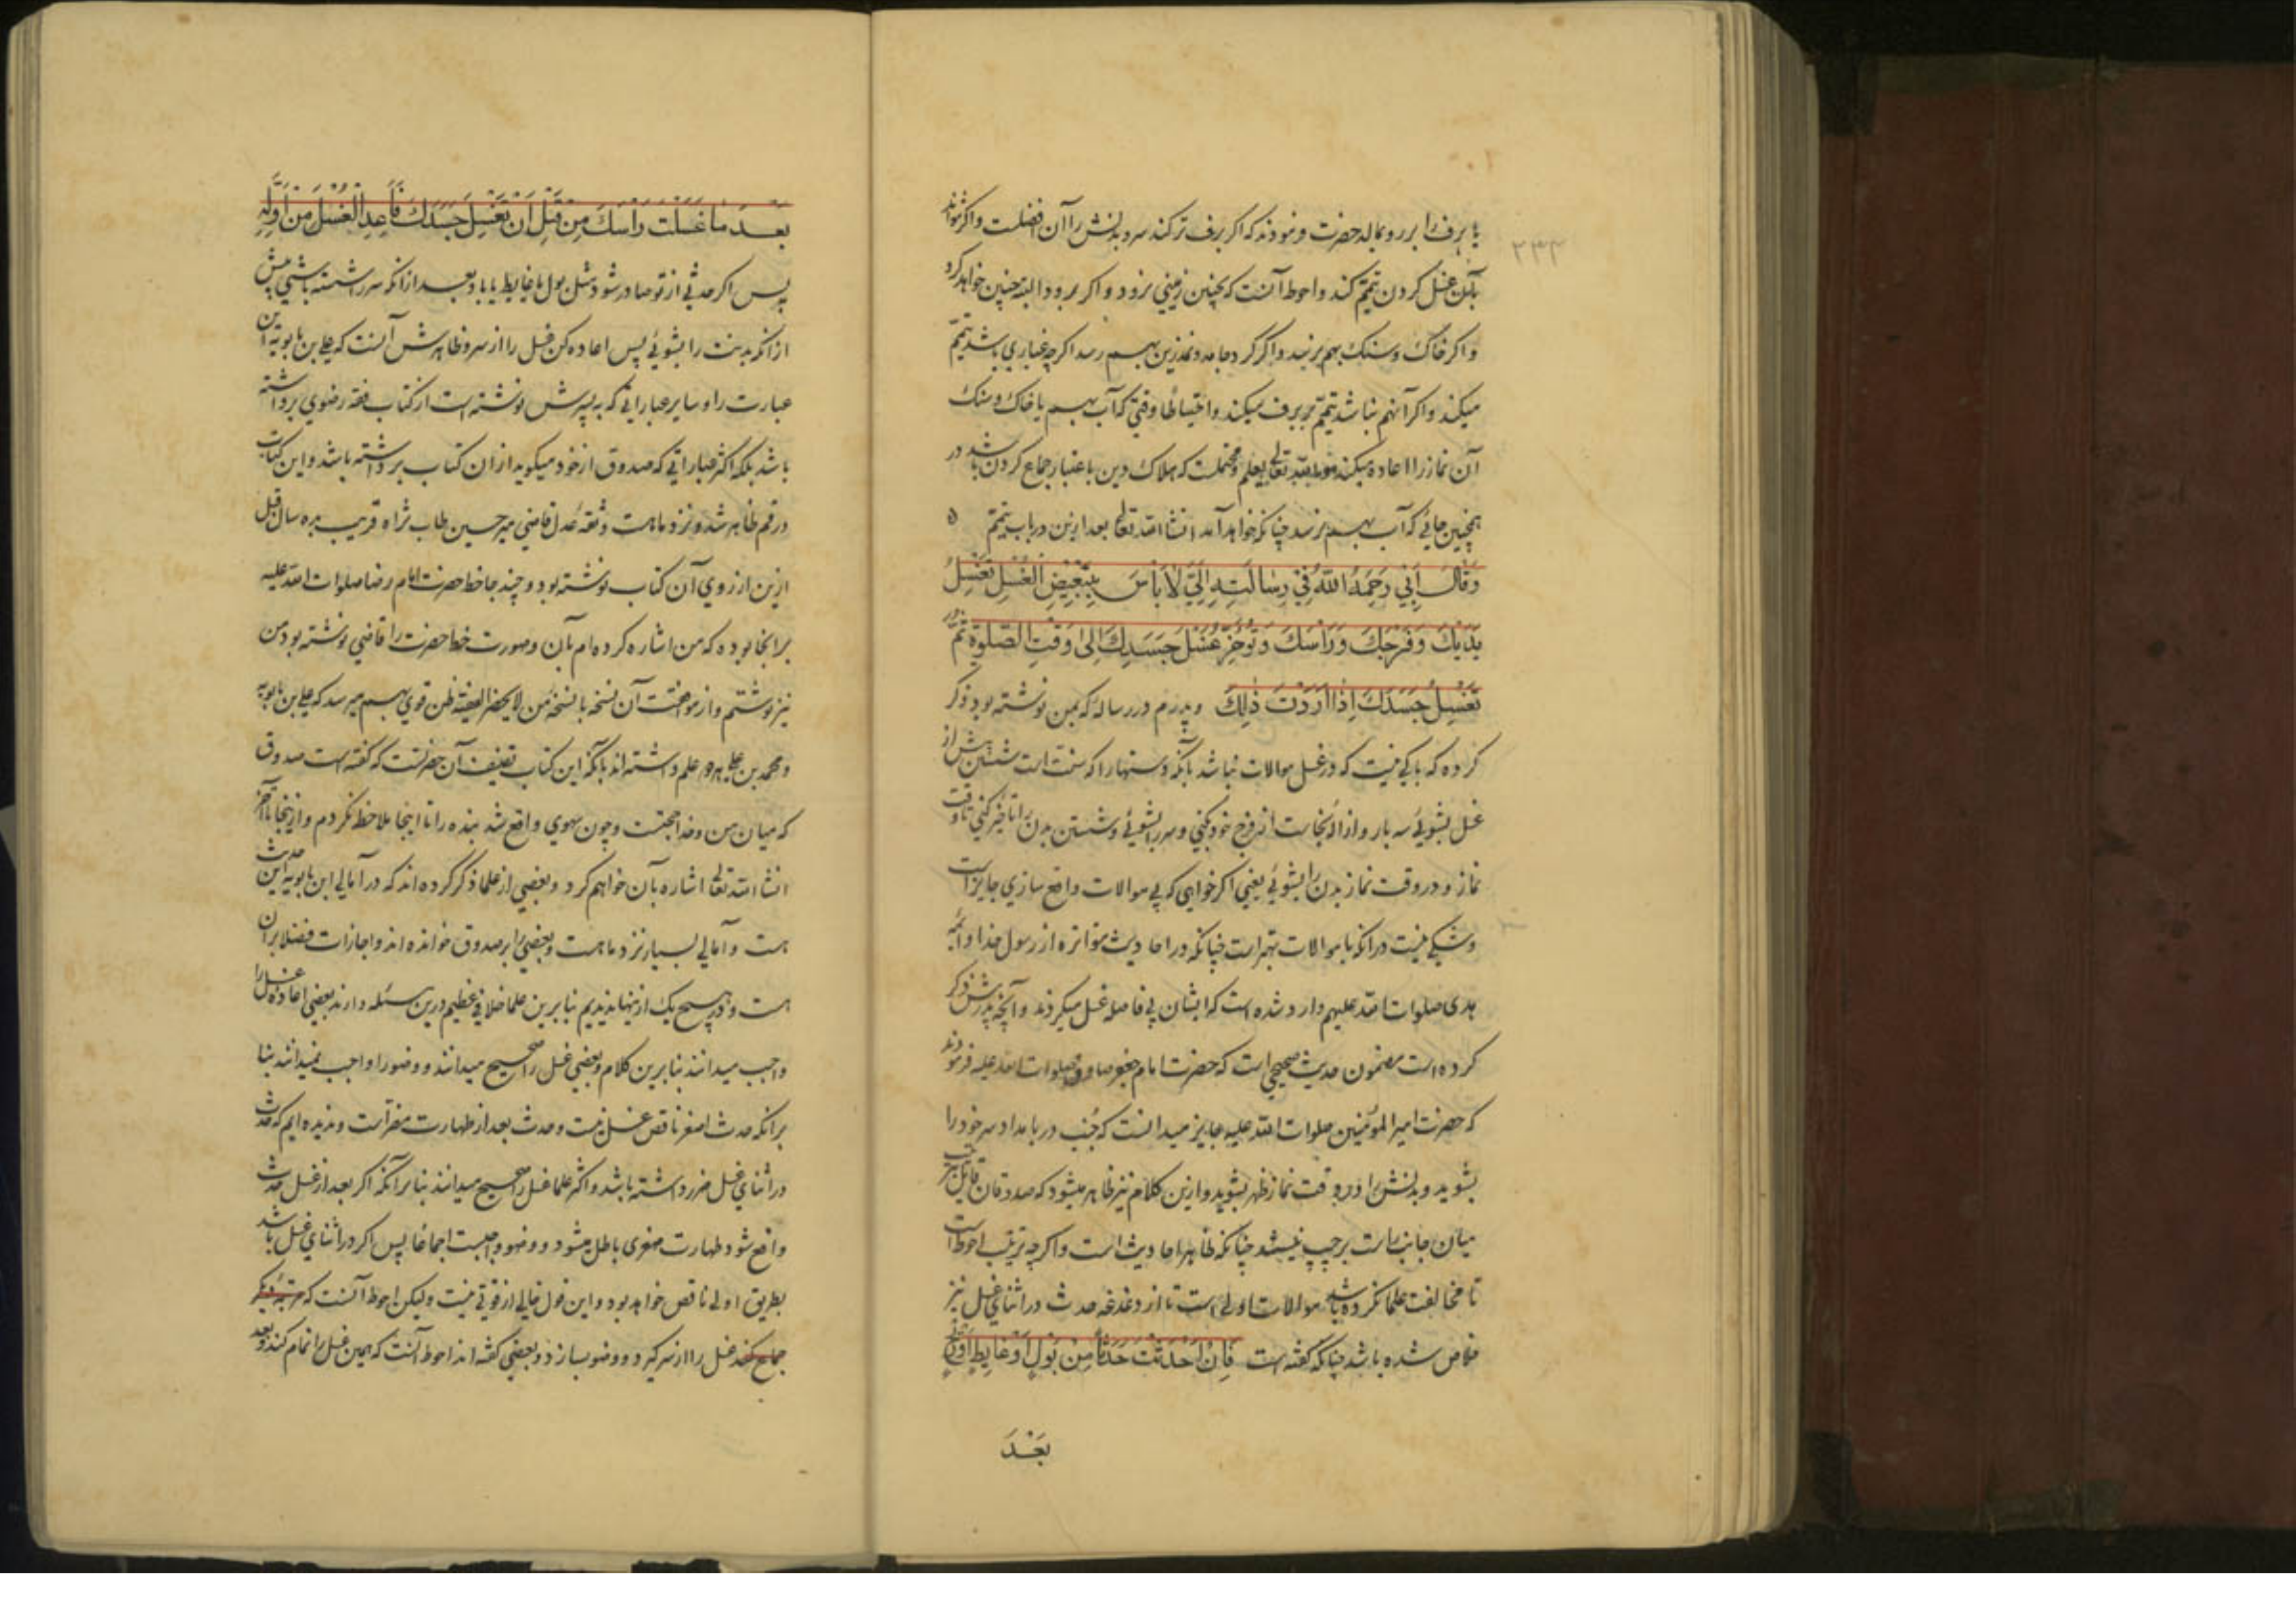 ۲۳۲
یا برف را بر رو بماله حضرت فرمودند که اکر برف تر کند سر و بدنش را آن افضلست و اکر نتواند
بآن غسل کردن تیمّم کند و احوط آنست که بچنین زمینی نرود و اکر برود البته چنین خواهد کرد
و اکر خاک و سنک بهم نرسد و اکر کرد جامه و نمد زین بهم رسد اکر چه غباری باشد تیمّم
میکند و اکر آنهم نباشد تیمّم بر برف میکند و احتیاطا وقتی که آب بهم یا خاک و سنک
آن نماز را اعاده میکند تعالی یعلم و محتملست که هلاک دین باعتبار جماع کردن باشد در
همچنین جائی که آب بهم نرسد چنانکه خواهد آمد انشا الله تعالی بعد ازین در باب تیمّم ه
وَقَالَ اَبِي رَحِمَهُ اللّٰهُ فِي رِسَالَتِهِ اِلَيَّ لَا بَأْسَ بِتَبْعِيضِ الْغُسْلِ تَغْسِلُ
يَدَيْكَ وَفَرْجَكَ وَرَأْسَكَ وَتُؤَخِّرُ غُسْلَ جَسَدِكَ اِلىٰ وَقْتِ الصَّلٰوةِ ثُمَّ
تَغْسِلُ جَسَدَكَ اِذَا اَرَدْتَ ذٰلِكَ و پدرم در رساله که بمن نوشته بود ذکر
کرده که باکی نیست که در غسل موالات نباشد بآنکه دستها را که سنت است شستن پیش از
غسل بشوئی سه بار و ازاله نجاست از فرج خود کنی و سر را بشوئی و شستن بدن را تاخیر کنی تا وقت
نماز و در وقت نماز بدن را بشوئی یعنی اکر خواهی که بی موالات واقع سازی جایز است
و شکی نیست در آنکه با موالات بهتر است چنانکه در احادیث متواتره از رسول خدا و ائمه
هدی صلوات الله علیهم وارد شده است که ایشان بی فاصله غسل میکردند و آنچه پدرش ذکر
کرده است مضمون حدیث صحیحی است که حضرت امام جعفر صادق صلوات الله علیه فرمودند
که حضرت امیر المؤمنین صلوات الله علیه جایز میدانست که جُنب در بامداد سر خود را
بشوید و بدنش را در وقت نماز ظهر بشوید و ازین کلام نیز ظاهر میشود که صدوقان قایل بترتیب
میان جانب راست بر چپ نیستند چنانکه ظاهر احادیث است و اکر چه ترتیب احوط است
تا مخالفت علما نکرده باشد موالات اولی است تا از دغدغه حدث در اثنای غسل نیز
خلاص شده باشد چنانکه کفته است فَاِنْ اَحْدَثْتَ حَدَثًا مِنْ بَوْلٍ اَوْ غَايِطٍ اَوْ رِيحٍ
بَعْدَ
بَعْدَ مَا غَسَلْتَ رَأْسَكَ مِنْ قَبْلِ اَنْ تَغْسِلَ جَسَدَكَ فَاَعِدِ الْغُسْلَ مِنْ اَوَّلِهِ
پس اکر حدثی از تو صادر شود مثل بول یا غایط یا باد بعد از آنکه سر را شسته باشی پیش
از آنکه بدنت را بشوئی پس اعاده کن غسل را از سر و ظاهرش آنست که علی بن بابویه این
عبارت را و سایر عباراتی که به پسرش نوشته است از کتاب فقه رضوی برداشته
باشد بلکه اکثر عباراتی که صدوق از خود میکوید از آن کتاب برداشته باشد و این کتاب
در قم ظاهر شد و نزد ما هست و ثقه عدل قاضی میر حسین طاب ثراه قریب بده سال قبل
ازین از روی آن کتاب نوشته بود و چند جا خط حضرت امام رضا صلوات الله علیه
بر انجا بوده که من اشاره کرده ام بآن و صورت خط حضرت را قاضی نوشته بود من
نیز نوشتم و از موافقت آن نسخه با نسخه من لا یحضره الفقیه ظن قوی بهم میرسد که علی بن بابویه
و محمد بن علی هر دو علم داشته اند بآنکه این کتاب تصنیف آن حضرتست که کفته است صدوق
که میان من و خدا حجتست و چون سهوی واقع شد بنده را تا اینجا ملاحظه نکردم و از اینجا تا آخر
انشا الله تعالی اشاره بآن خواهم کرد و بعضی از علما ذکر کرده اند که در آمالی ابن بابویه این حدیث
هست و آمالی بسیار نزد ما هست و بعضی را بر صدوق خوانده اند و اجازات فضلا بر آن
هست و در هیچ یک از اینها ندیدیم بنا برین علما خلافی عظیم درین مسئله دارند بعضی اعاده غسل را
واجب میدانند بنا برین کلام و بعضی غسل را صحیح میدانند و وضو را واجب نمیدانند بنا
بر آنکه حدث اصغر ناقض غسل نیست و حدث بعد از طهارت مضرّ است و ندیده ایم که حدث
در اثنای غسل ضرر داشته باشد و اکثر علما غسل را صحیح میدانند بنا بر آنکه اکر بعد از غسل حدث
واقع شود طهارت صغری باطل میشود و وضو واجبست اجماعا پس اکر در اثنای غسل باشد
بطریق اولی ناقض خواهد بود و این قول خالی از قوّتی نیست و لیکن احوط آنست که مرتبه دیکر
جماع کند غسل را از سر کیرد و وضو بسازد و بعضی کفته اند احوط آنست که همین غسل را تمام کند و بعد